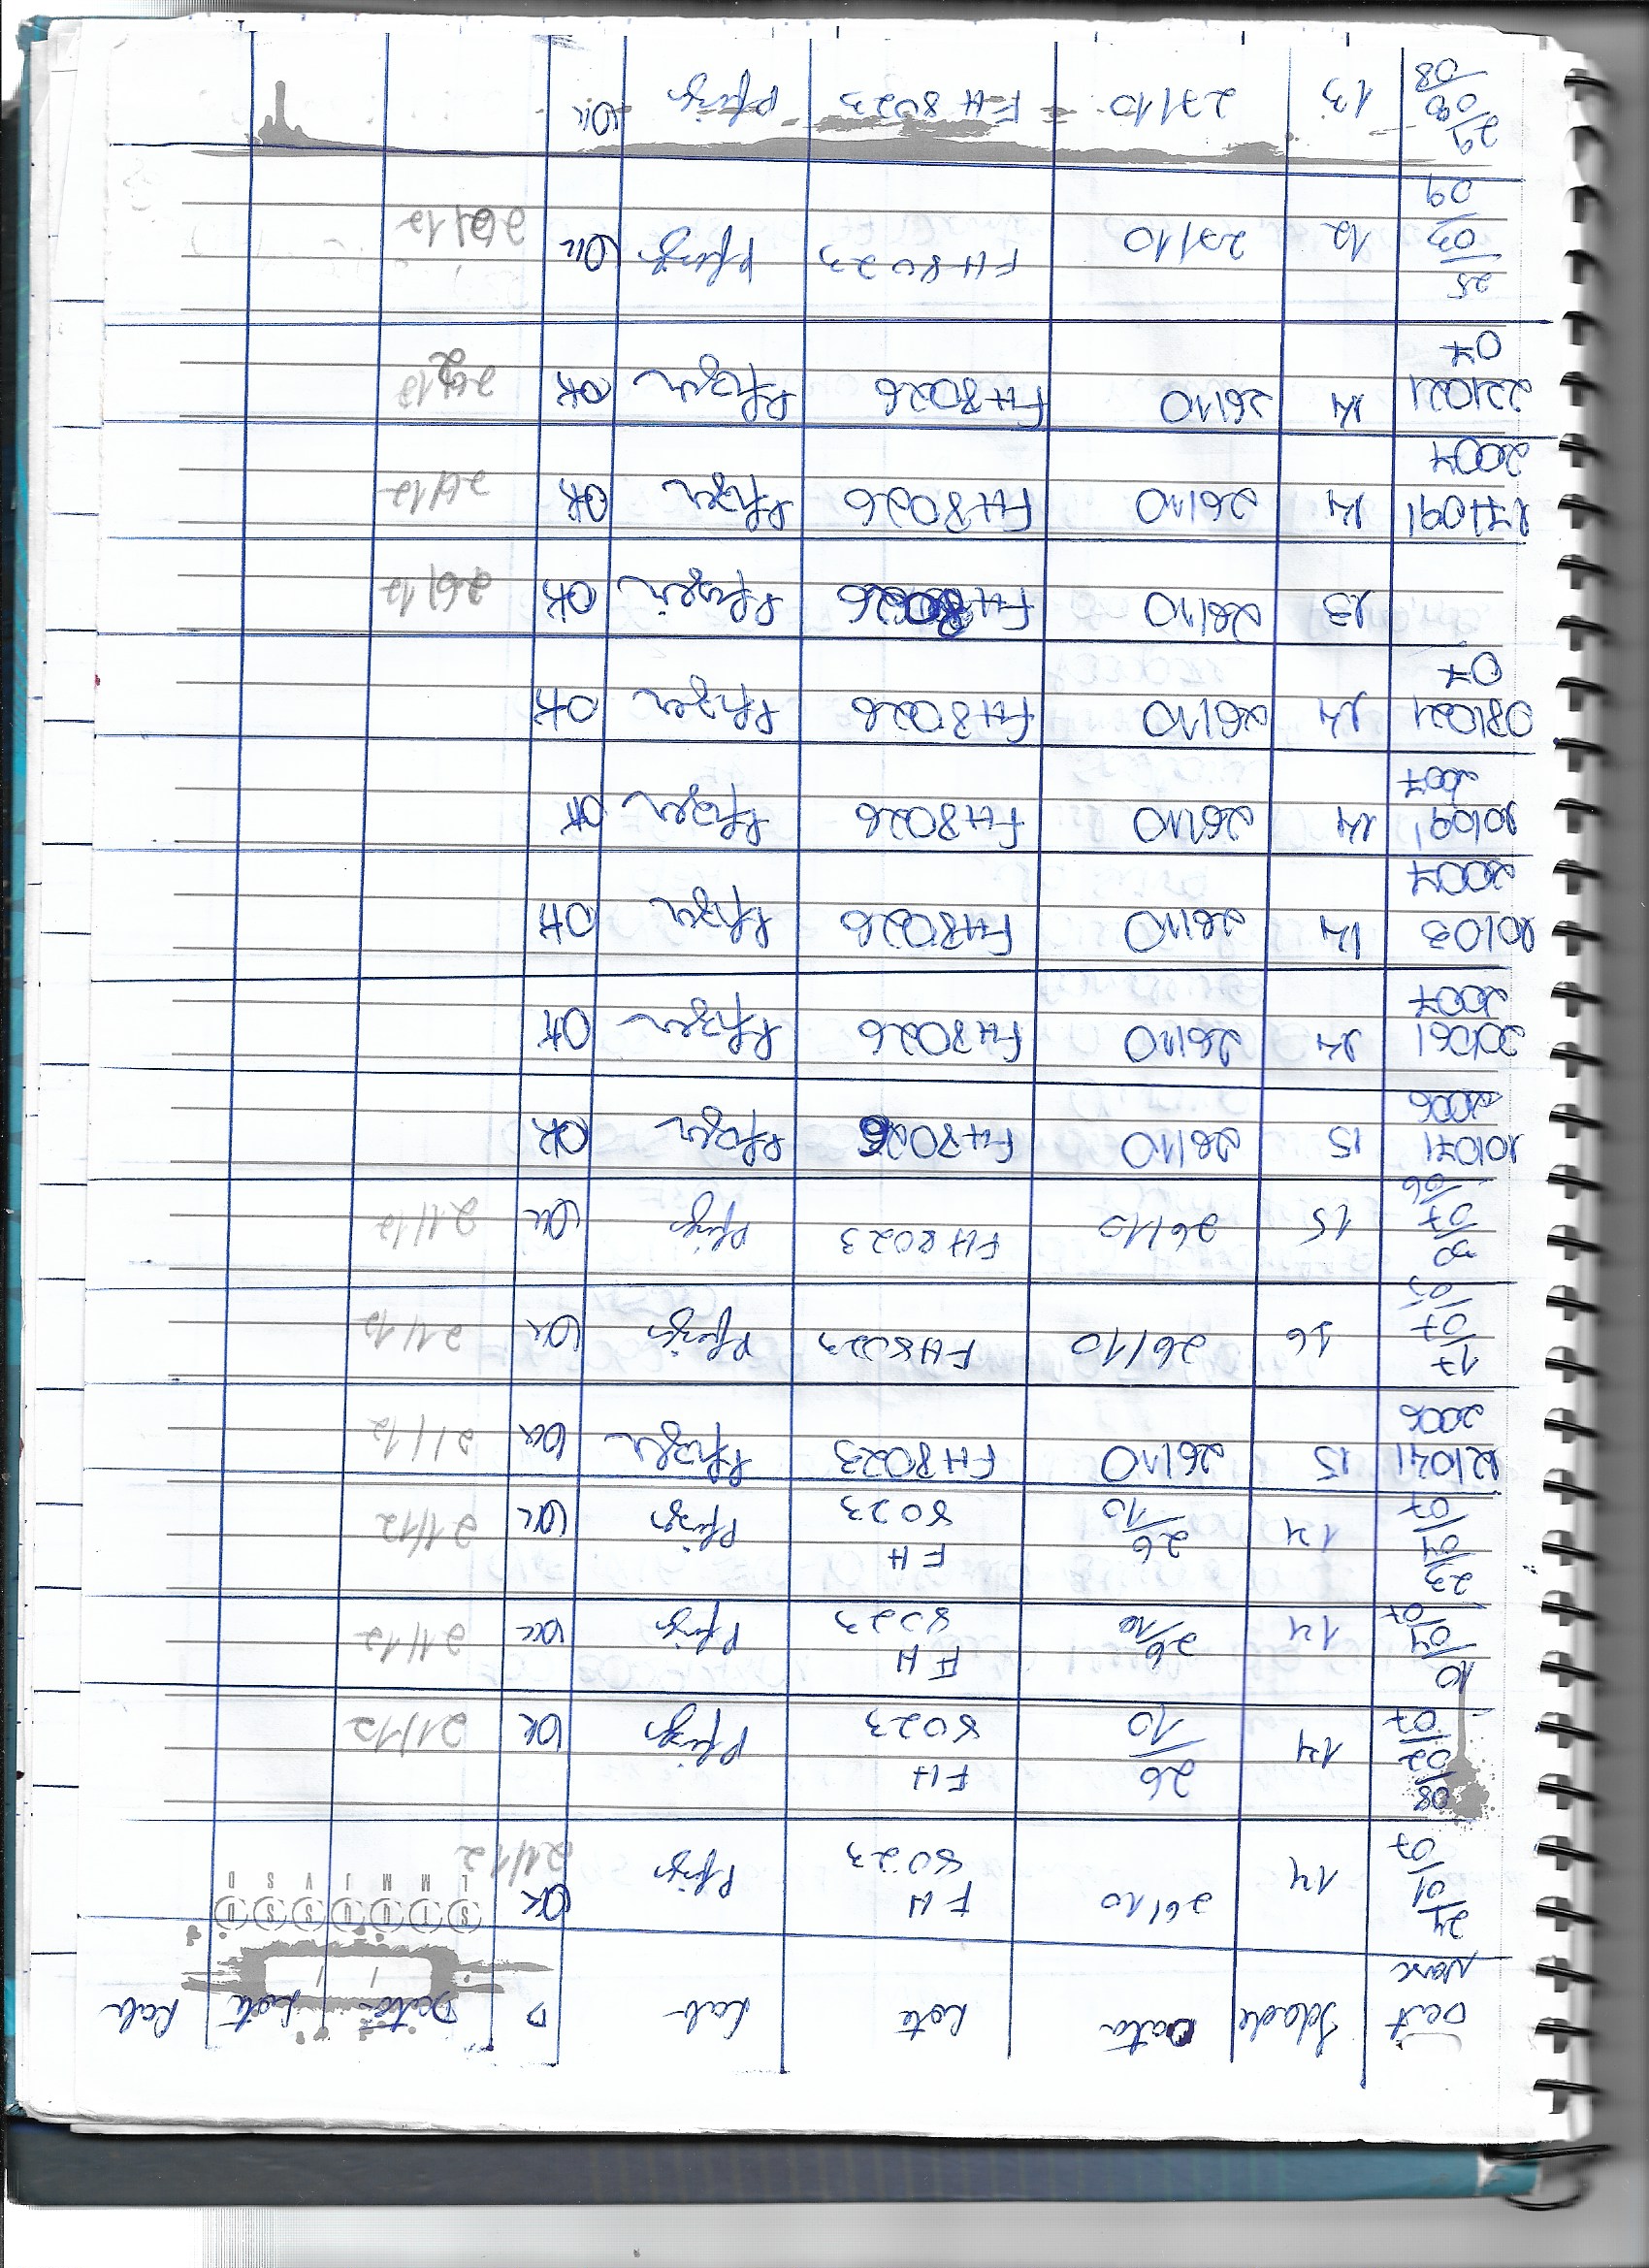 Dat Nasc Idade Data Lote Lab D Data Lote Lab
S T Q Q S S D
L M M J V S D
24/01/07 14 26/10 FH 8023 Pfizer OK 21/12
08/02/07 14 26/10 FH 8023 Pfizer OK 21/12
10/04/07 14 26/10 FH 8023 Pfizer OK 21/12
23/01/07 14 26/10 FH 8023 Pfizer OK 21/12
12/04/2006 15 26/10 FH8023 Pfizer OK 21/12
17/07/05 16 26/10 FH8023 Pfizer OK 21/12
30/07/06 15 26/10 FH8023 Pfizer OK 21/12
10/07/2006 15 26/10 FH8026 Pfizer OK
20/06/2007 14 26/10 FH8026 Pfizer OK
20/03 2007 14 26/10 FH8026 Pfizer OK
20/09/2007 14 26/10 FH8026 Pfizer OK
08/02/07 14 26/10 FH8026 Pfizer OK
13 26/10 FH8026 Pfizer OK 26/12
17/09/2007 14 26/10 FH8026 Pfizer OK
22/02/07 14 26/10 FH8026 Pfizer OK
25/03/09 12 27/10 FH8023 Pfizer OK
29/08/08 13 27/10 FH8023 Pfizer OK